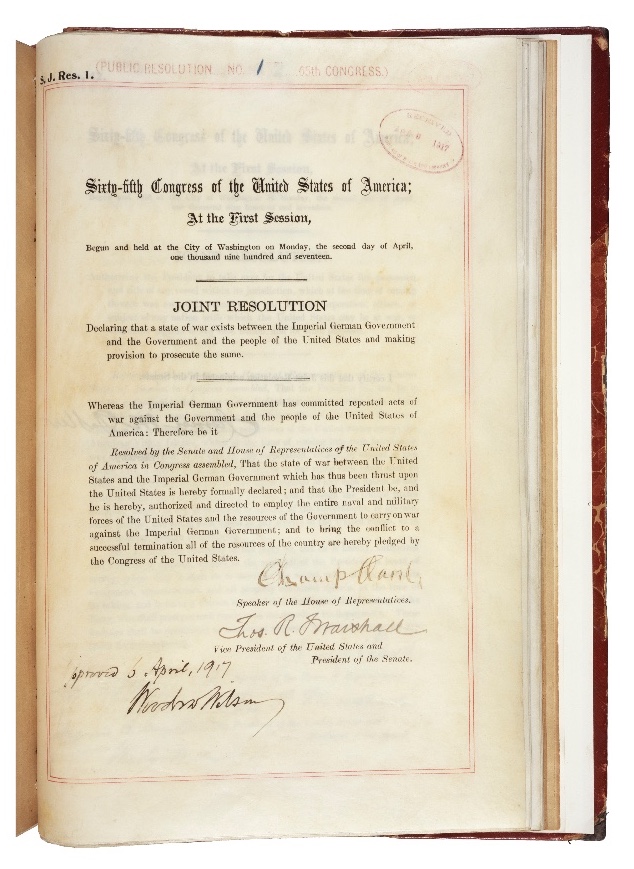 S. J. Res. 1.
(PUBLIC RESOLUTION NO. 1 65th CONGRESS.)
1917
Sixty-fifth Congress of the United States of America;
At the First Session,
Begun and held at the City of Washington on Monday, the second day of April,
one thousand nine hundred and seventeen.
JOINT RESOLUTION
Declaring that a state of war exists between the Imperial German Government
and the Government and the people of the United States and making
provision to prosecute the same.
Whereas the Imperial German Government has committed repeated acts of
war against the Government and the people of the United States of
America: Therefore be it
Resolved by the Senate and House of Representatives of the United States
of America in Congress assembled, That the state of war between the United
States and the Imperial German Government which has thus been thrust upon
the United States is hereby formally declared; and that the President be, and
he is hereby, authorized and directed to employ the entire naval and military
forces of the United States and the resources of the Government to carry on war
against the Imperial German Government; and to bring the conflict to a
successful termination all of the resources of the country are hereby pledged by
the Congress of the United States.
Champ Clark
Speaker of the House of Representatives.
Thos. R. Marshall
Vice President of the United States and
President of the Senate.
pproved 6 April, 1917
Woodrow Wilson